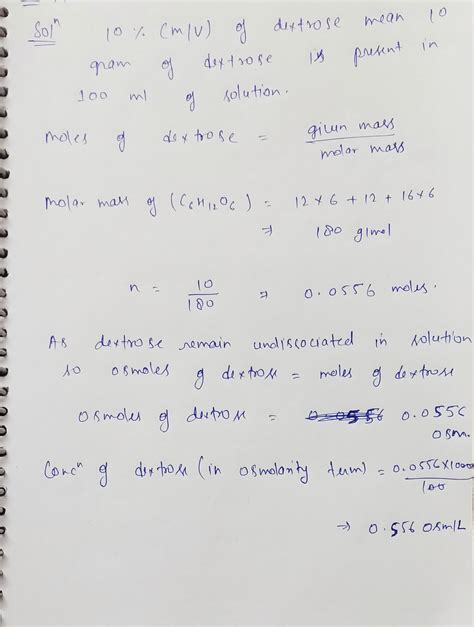 Solⁿ 10 % (m/v) of dextrose mean 10
gram of dextrose is present in
100 ml of solution.
moles of dextrose = given mass / molar mass
Molar mass of (C₆H₁₂O₆) = 12×6 + 12 + 16×6
⇒ 180 g/mol
n = 10/180 ⇒ 0.0556 moles.
As dextrose remain undissociated in solution
so osmoles of dextrose = moles of dextrose
osmoles of dextrose = 0.0556 0.0556
osm.
Concⁿ of dextrose (in osmolarity term) = 0.0556×1000/100
⇒ 0.556 osm/L